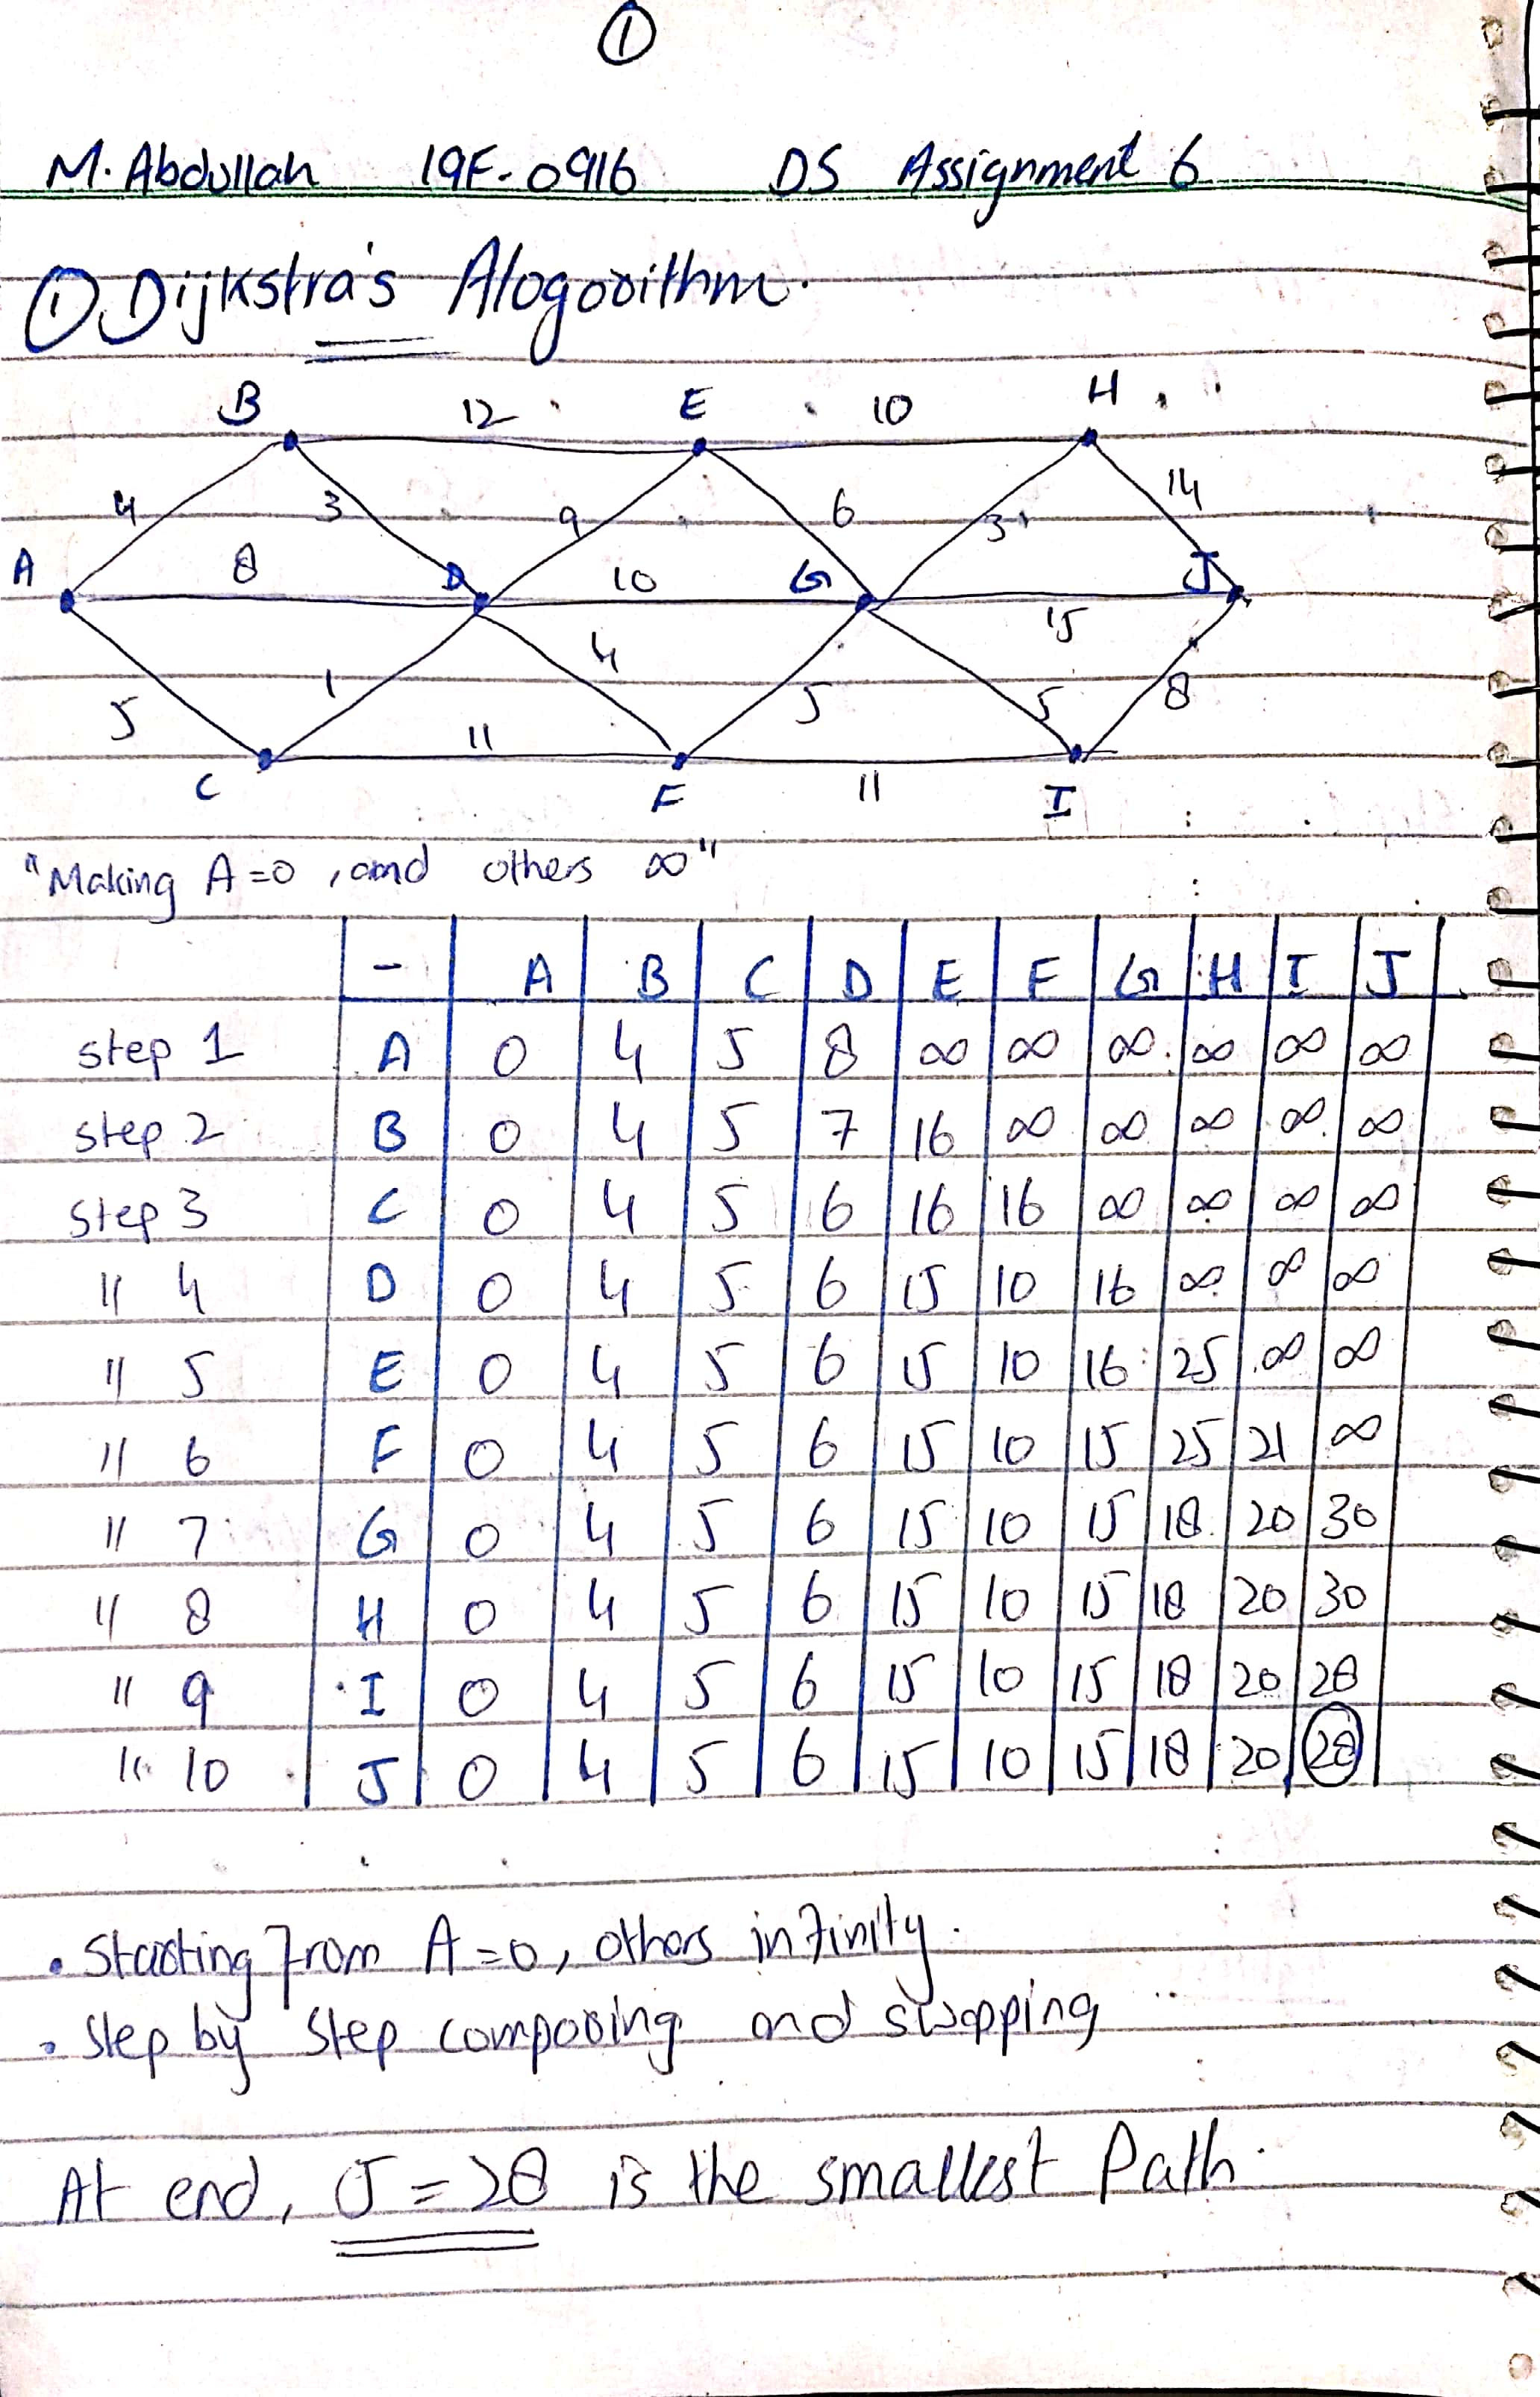 ①
M. Abdullah 19F-0916 DS Assignment 6
① Dijkstra's Alogorithm.
B 12 E 10 H
4 3 9 6 3 14
A 8 D 10 G 15 J
5 1 4 5 5 8
C 11 F 11 I
"Making A=0, and others ∞"
- A B C D E F G H I J
step 1 A 0 4 5 8 ∞ ∞ ∞ ∞ ∞ ∞
step 2 B 0 4 5 7 16 ∞ ∞ ∞ ∞ ∞
step 3 C 0 4 5 6 16 16 ∞ ∞ ∞ ∞
" 4 D 0 4 5 6 15 10 16 ∞ ∞ ∞
" 5 E 0 4 5 6 15 10 16 25 ∞ ∞
" 6 F 0 4 5 6 15 10 15 25 21 ∞
" 7 G 0 4 5 6 15 10 15 18 20 30
" 8 H 0 4 5 6 15 10 15 18 20 30
" 9 I 0 4 5 6 15 10 15 18 20 28
" 10 J 0 4 5 6 15 10 15 18 20 28
• Starting from A=0, others infinity.
• Step by step comparing and swapping
At end, J=28 is the smallest Path.